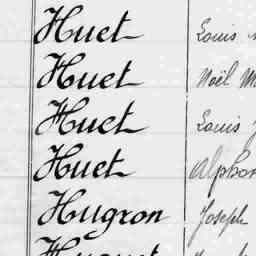 Huet Louis
Huet Noël
Huet Louis
Huet
Hugron Joseph